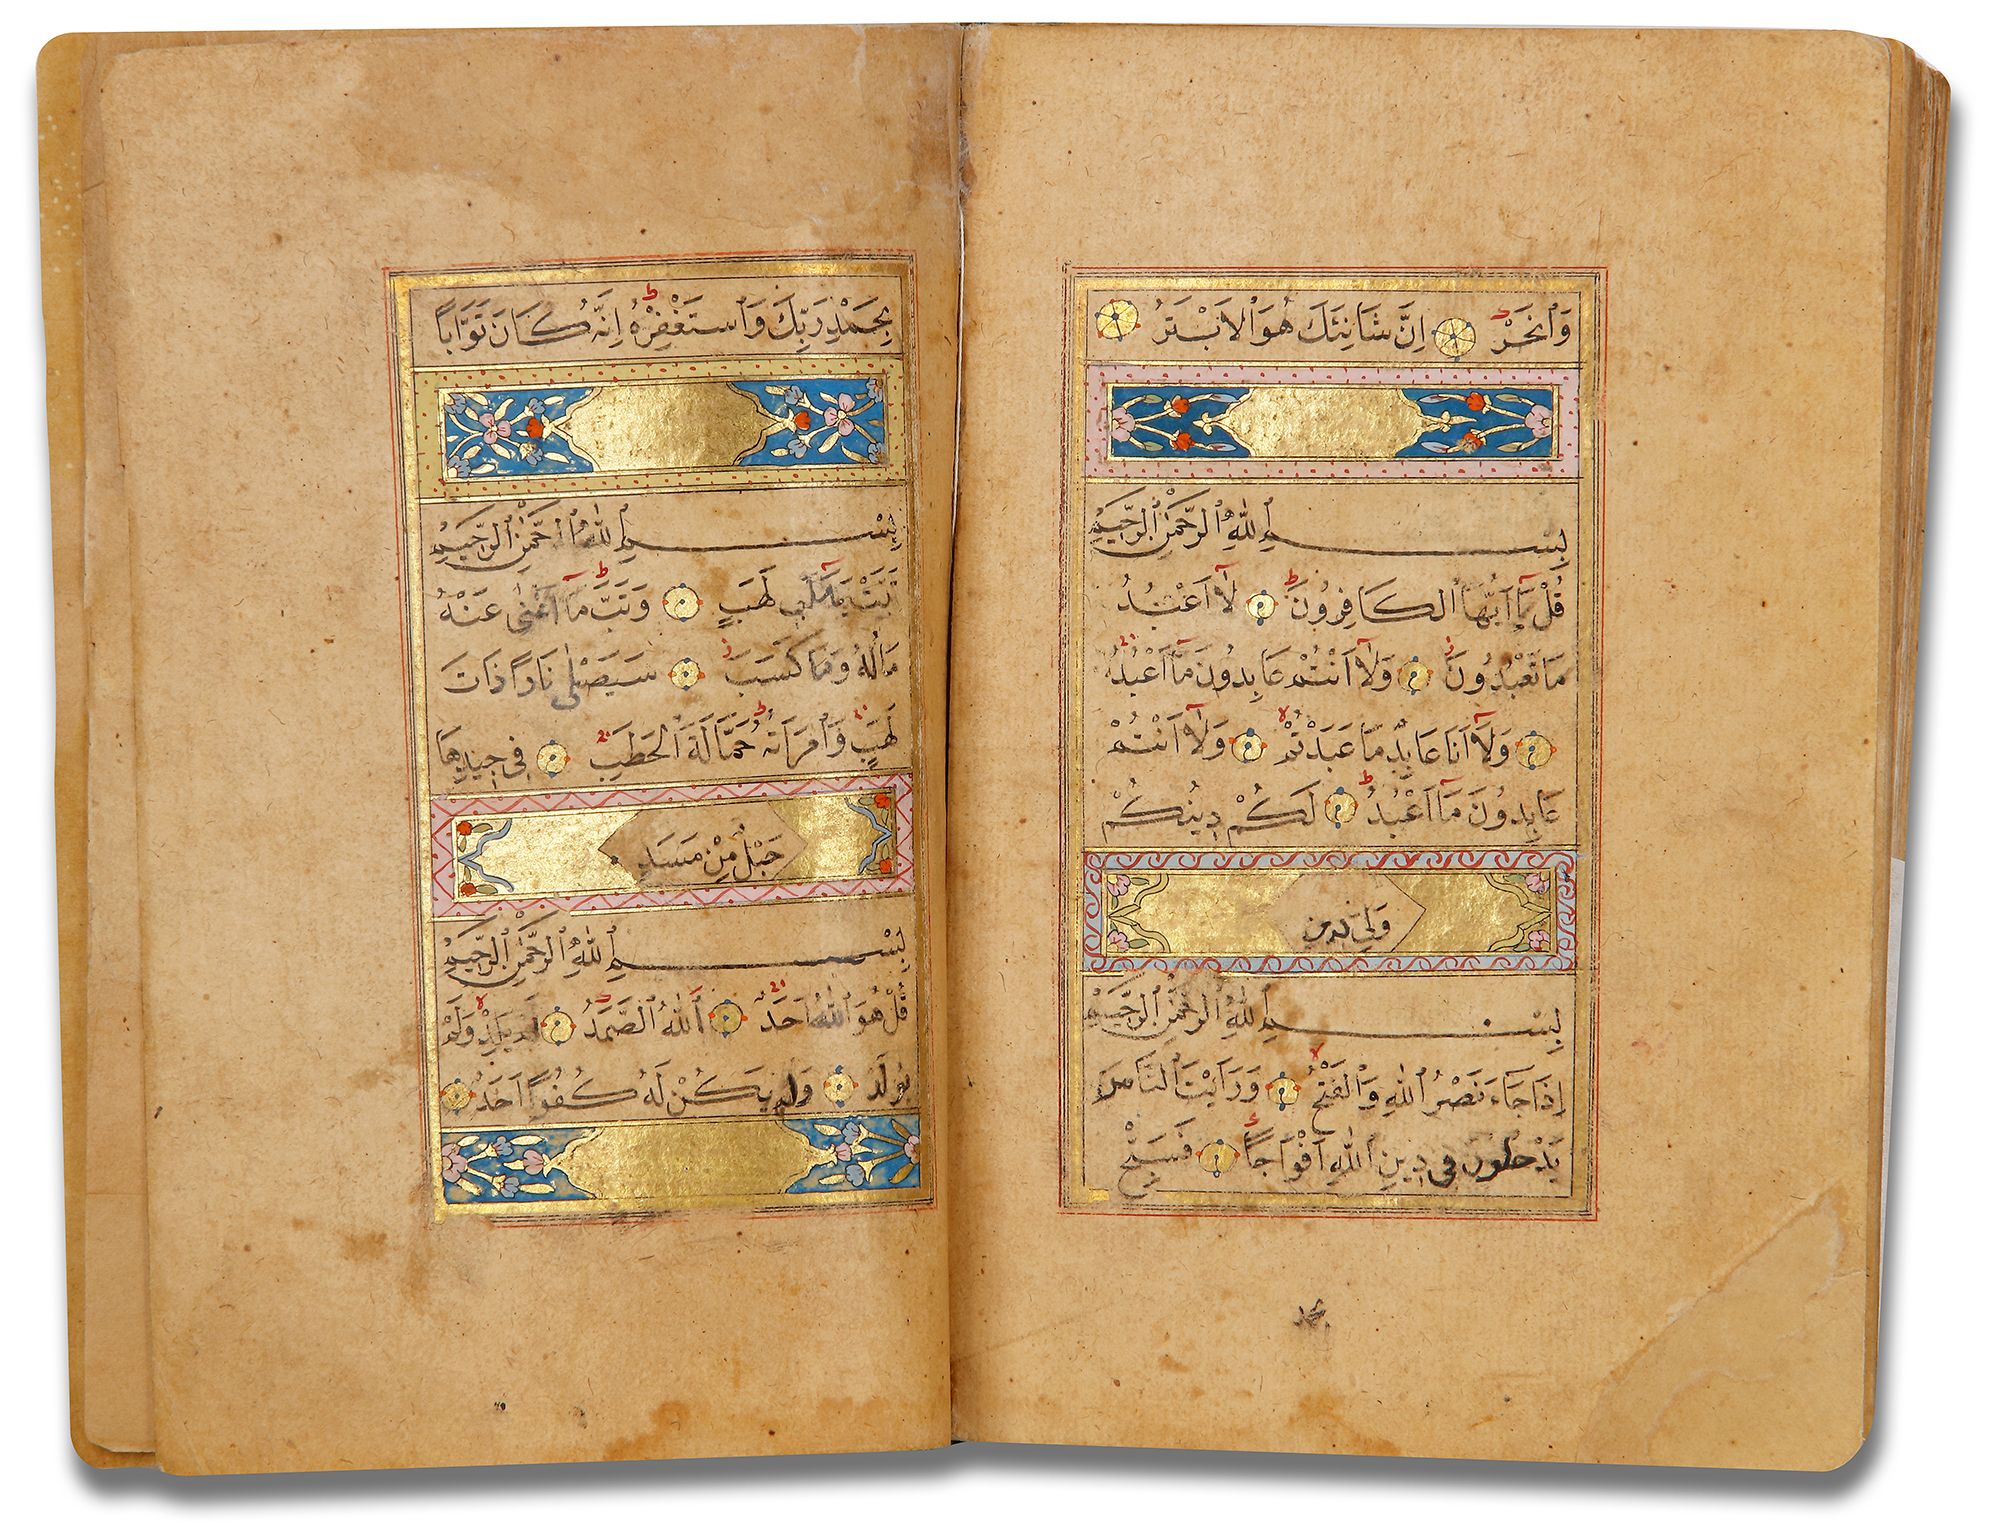 وَانْحَرْ اِنَّ شَانِئَكَ هُوَ الْاَبْتَرُ
بِسْمِ اللّٰهِ الرَّحْمٰنِ الرَّحِيمِ
قُلْ يَا اَيُّهَا الْكَافِرُونَ لَا اَعْبُدُ
مَا تَعْبُدُونَ وَلَا اَنْتُمْ عَابِدُونَ مَا اَعْبُدُ
وَلَا اَنَا عَابِدٌ مَا عَبَدْتُمْ وَلَا اَنْتُمْ
عَابِدُونَ مَا اَعْبُدُ لَكُمْ دِينُكُمْ
وَلِيَ دِينِ
بِسْمِ اللّٰهِ الرَّحْمٰنِ الرَّحِيمِ
اِذَا جَاءَ نَصْرُ اللّٰهِ وَالْفَتْحُ وَرَاَيْتَ النَّاسَ
يَدْخُلُونَ فِي دِينِ اللّٰهِ اَفْوَاجًا فَسَبِّحْ
بِحَمْدِ رَبِّكَ وَاسْتَغْفِرْهُ اِنَّهُ كَانَ تَوَّابًا
بِسْمِ اللّٰهِ الرَّحْمٰنِ الرَّحِيمِ
تَبَّتْ يَدَا اَبِي لَهَبٍ وَتَبَّ مَا اَغْنٰى عَنْهُ
مَالُهُ وَمَا كَسَبَ سَيَصْلٰى نَارًا ذَاتَ
لَهَبٍ وَامْرَاَتُهُ حَمَّالَةَ الْحَطَبِ فِي جِيدِهَا
حَبْلٌ مِنْ مَسَدٍ
بِسْمِ اللّٰهِ الرَّحْمٰنِ الرَّحِيمِ
قُلْ هُوَ اللّٰهُ اَحَدٌ اَللّٰهُ الصَّمَدُ لَمْ يَلِدْ وَلَمْ
يُولَدْ وَلَمْ يَكُنْ لَهُ كُفُوًا اَحَدٌ